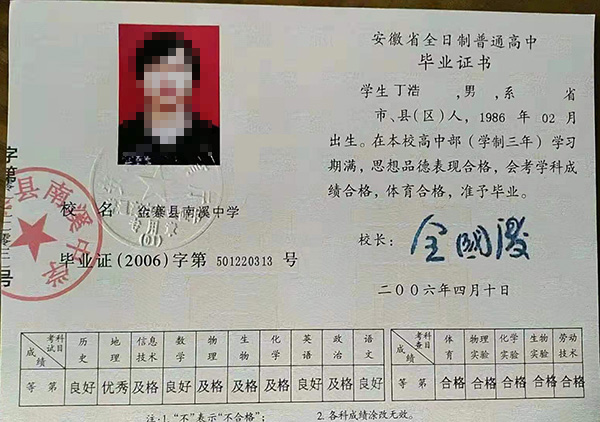 安徽省全日制普通高中
毕业证书
学生丁浩 ,男,系 省
市、县(区)人,1986 年 02 月
出生。在本校高中部(学制三年)学习
期满,思想品德表现合格,会考学科成
绩合格,体育合格,准予毕业。
校长:
二〇〇六年四月十日
校 名 金寨县南溪中学
毕业证(2006)字第 501220313 号
县南溪中学
专用章
(01)
字第
号
科目 考试 成绩 历史 地理 信息技术 数学 物理 生物 化学 英语 政治 语文
等 第 良好 优秀 及格 良好 及格 及格 及格 良好 及格 良好
科目 考查 成绩 体育 物理实验 化学实验 生物实验 劳动技术
等 第 合格 合格 合格 合格 合格
注:1.“不”表示“不合格”; 2.各科成绩涂改无效。